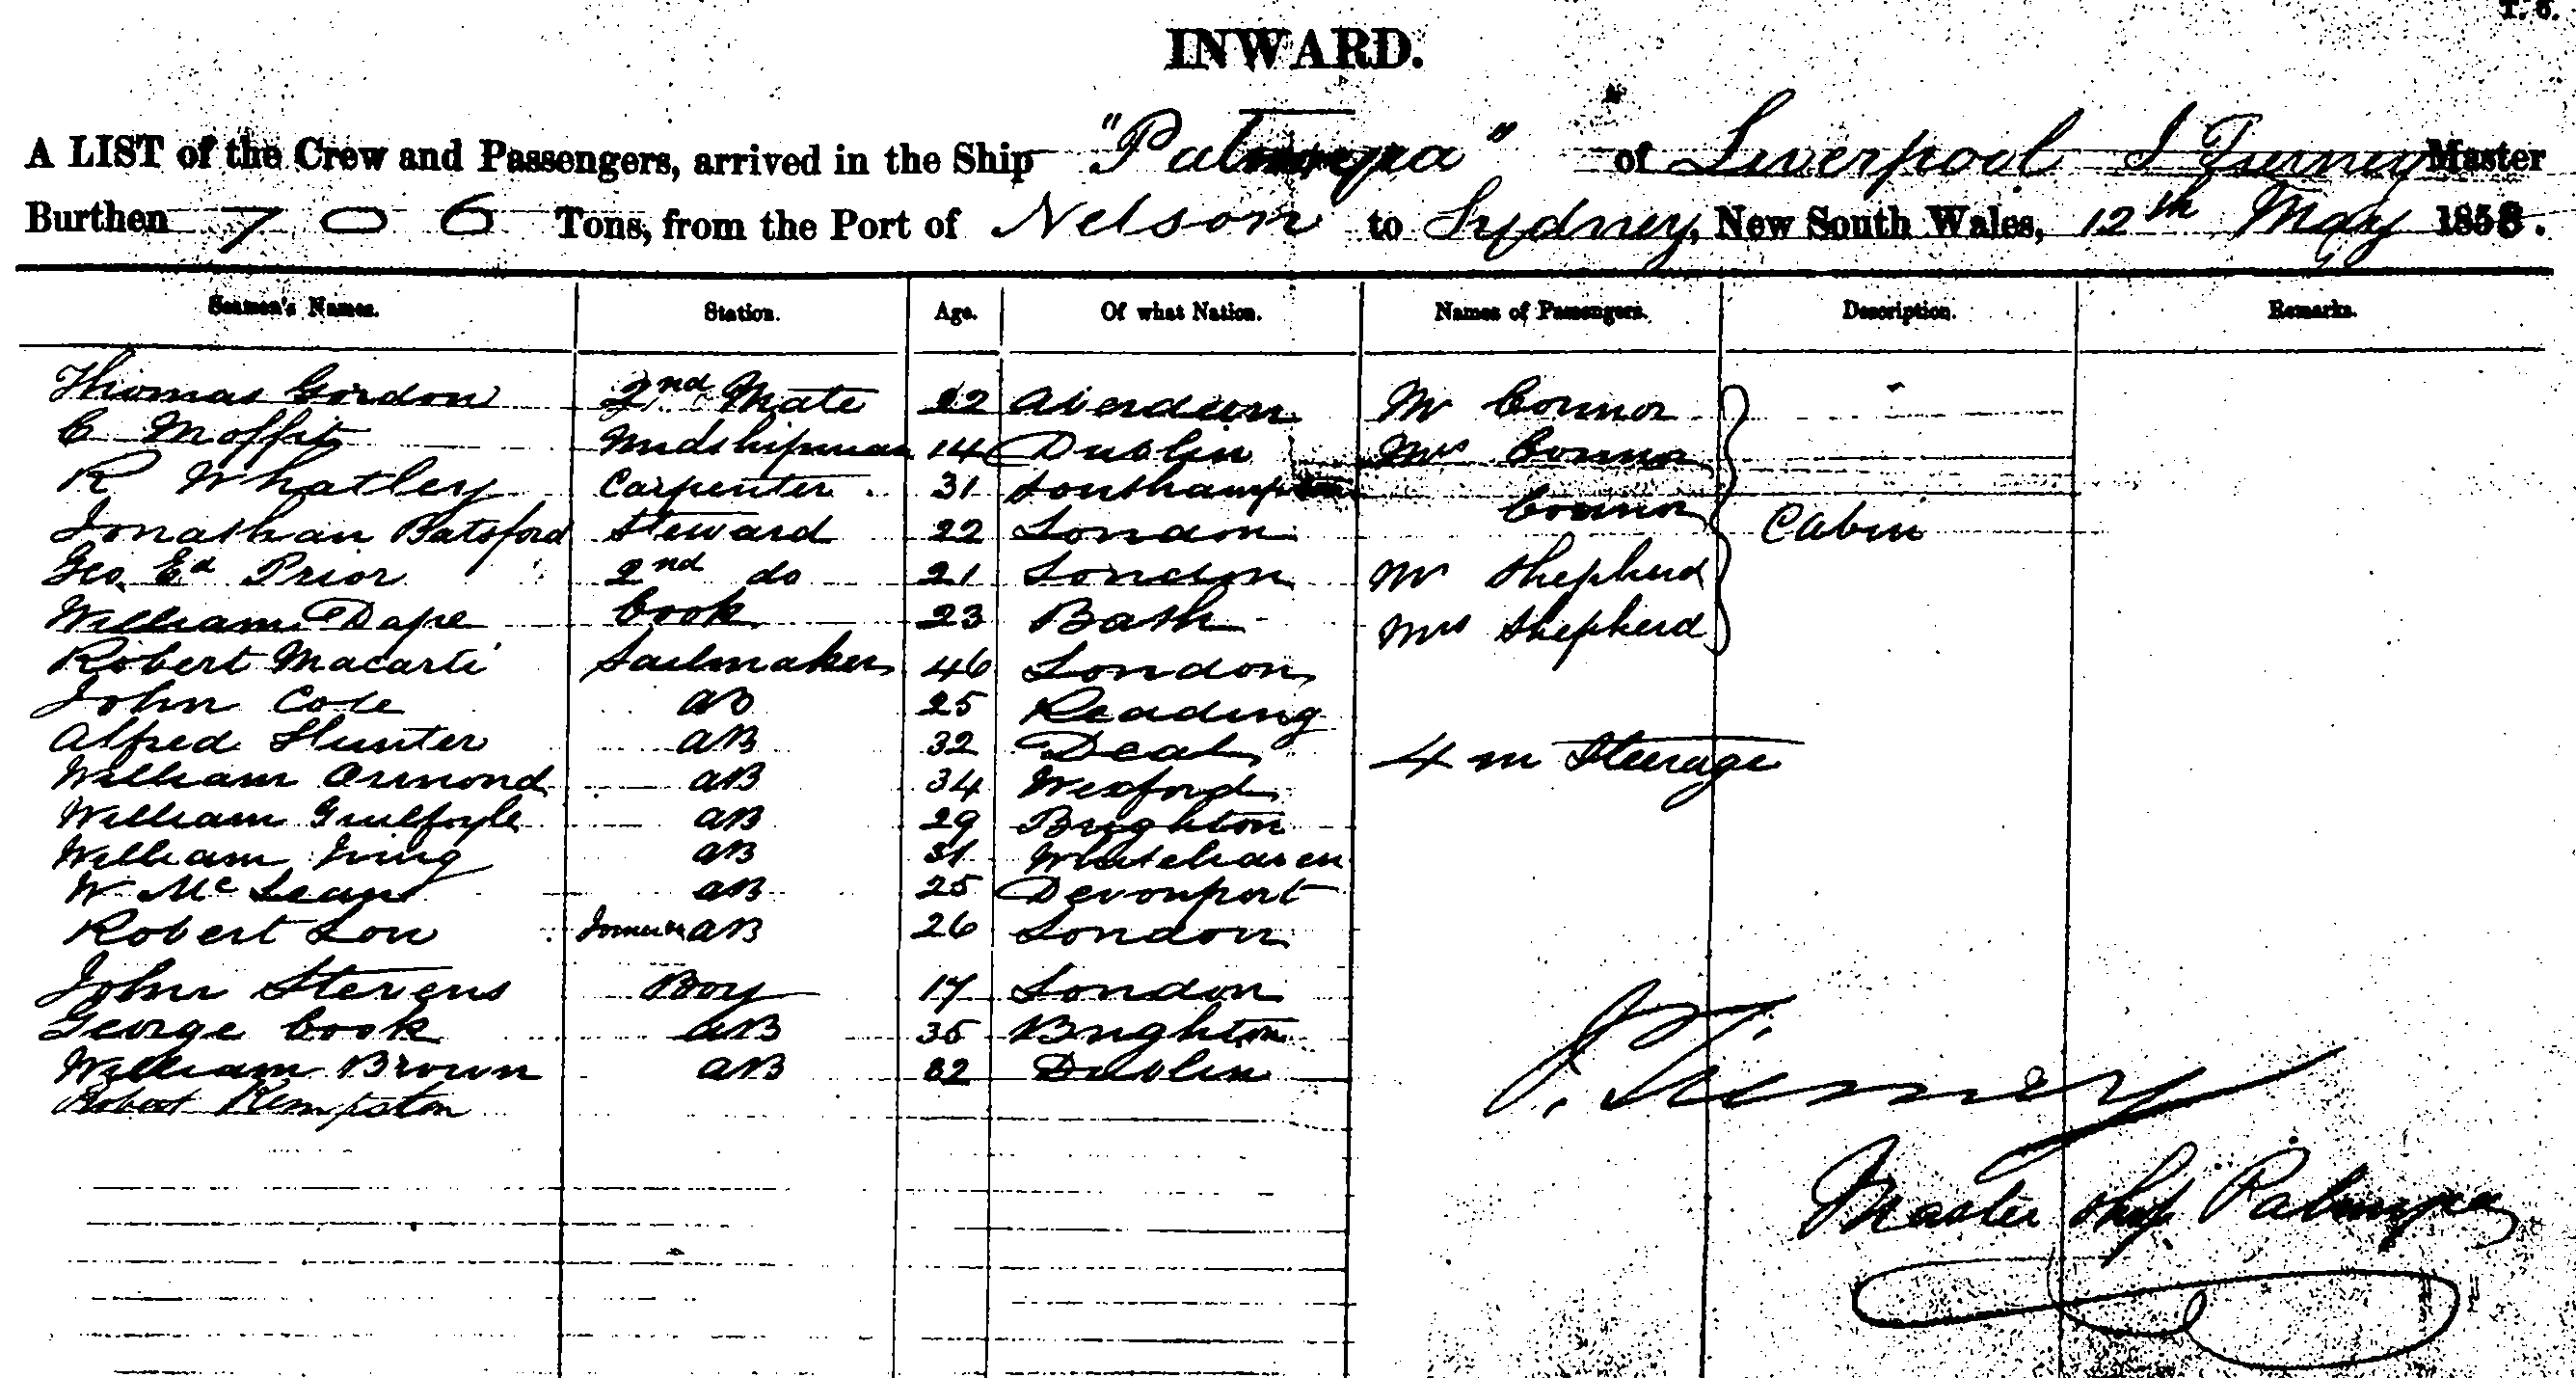 T. 5.
INWARD.
A LIST of the Crew and Passengers, arrived in the Ship "Palmyra" of Liverpool Master
Burthen 706 Tons, from the Port of Nelson to Sydney, New South Wales, 12th May 1858.
Seamen's Names. Station. Age. Of what Nation. Names of Passengers. Description. Remarks.
Thomas Gordon 2nd Mate 22 Aberdeen Mr Connor
C Moffit Midshipman 14 Dublin Mrs Connor
R Whatley Carpenter 31 Southampton
Connor
Jonathan Batsford Steward 22 London Cabin
Geo Ed Prior 2nd do 21 London Mr Shepherd
William Dape Cook 23 Bath Mrs Shepherd
Robert Macarti Sailmaker 46 London
John Cole AB 25 Reading
Alfred Hunter AB 32 Deal
4 in Steerage
William Ormond AB 34 Wexford
William Guilfoyle AB 29 Brighton
William Irving AB 31 Whitehaven
W McLean AB 25 Devonport
Robert Low AB 26 London
John Stevens Boy 17 London
George Cook AB 35 Brighton
William Brown AB 32 Dublin
Robert Kempston
Master Ship Palmyra